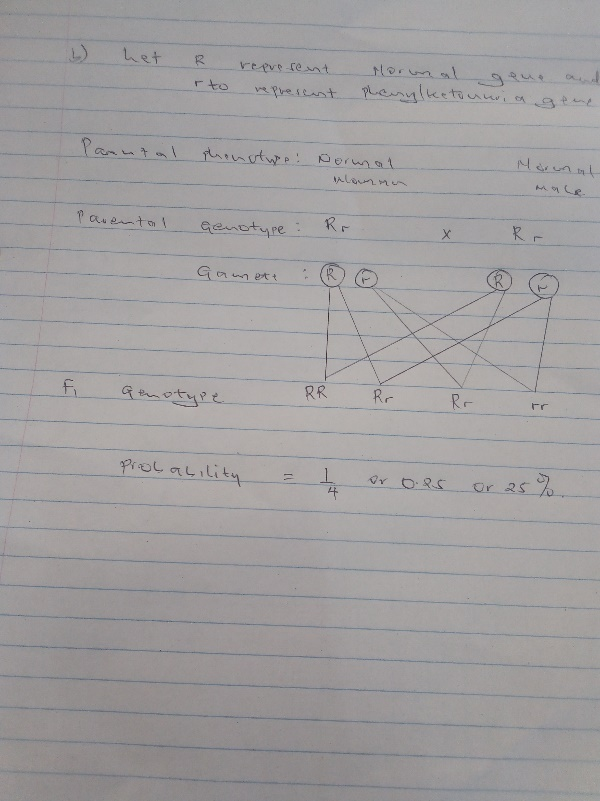 b) Let R represent Normal gene and
r to represent phenylketonuria gene
Parental phenotype: Normal Normal
Woman male
Parental genotype: Rr x Rr
Gamete : R r R r
F1 genotype RR Rr Rr rr
Probability = 1/4 or 0.25 or 25%.